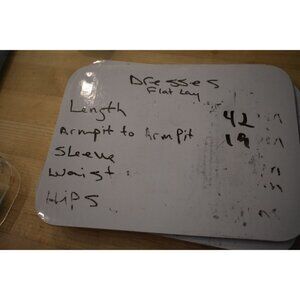 Dresses
Flat Lay
Length 42 in
Armpit to Armpit 19 in
Sleeve
Waist : in
Hips in